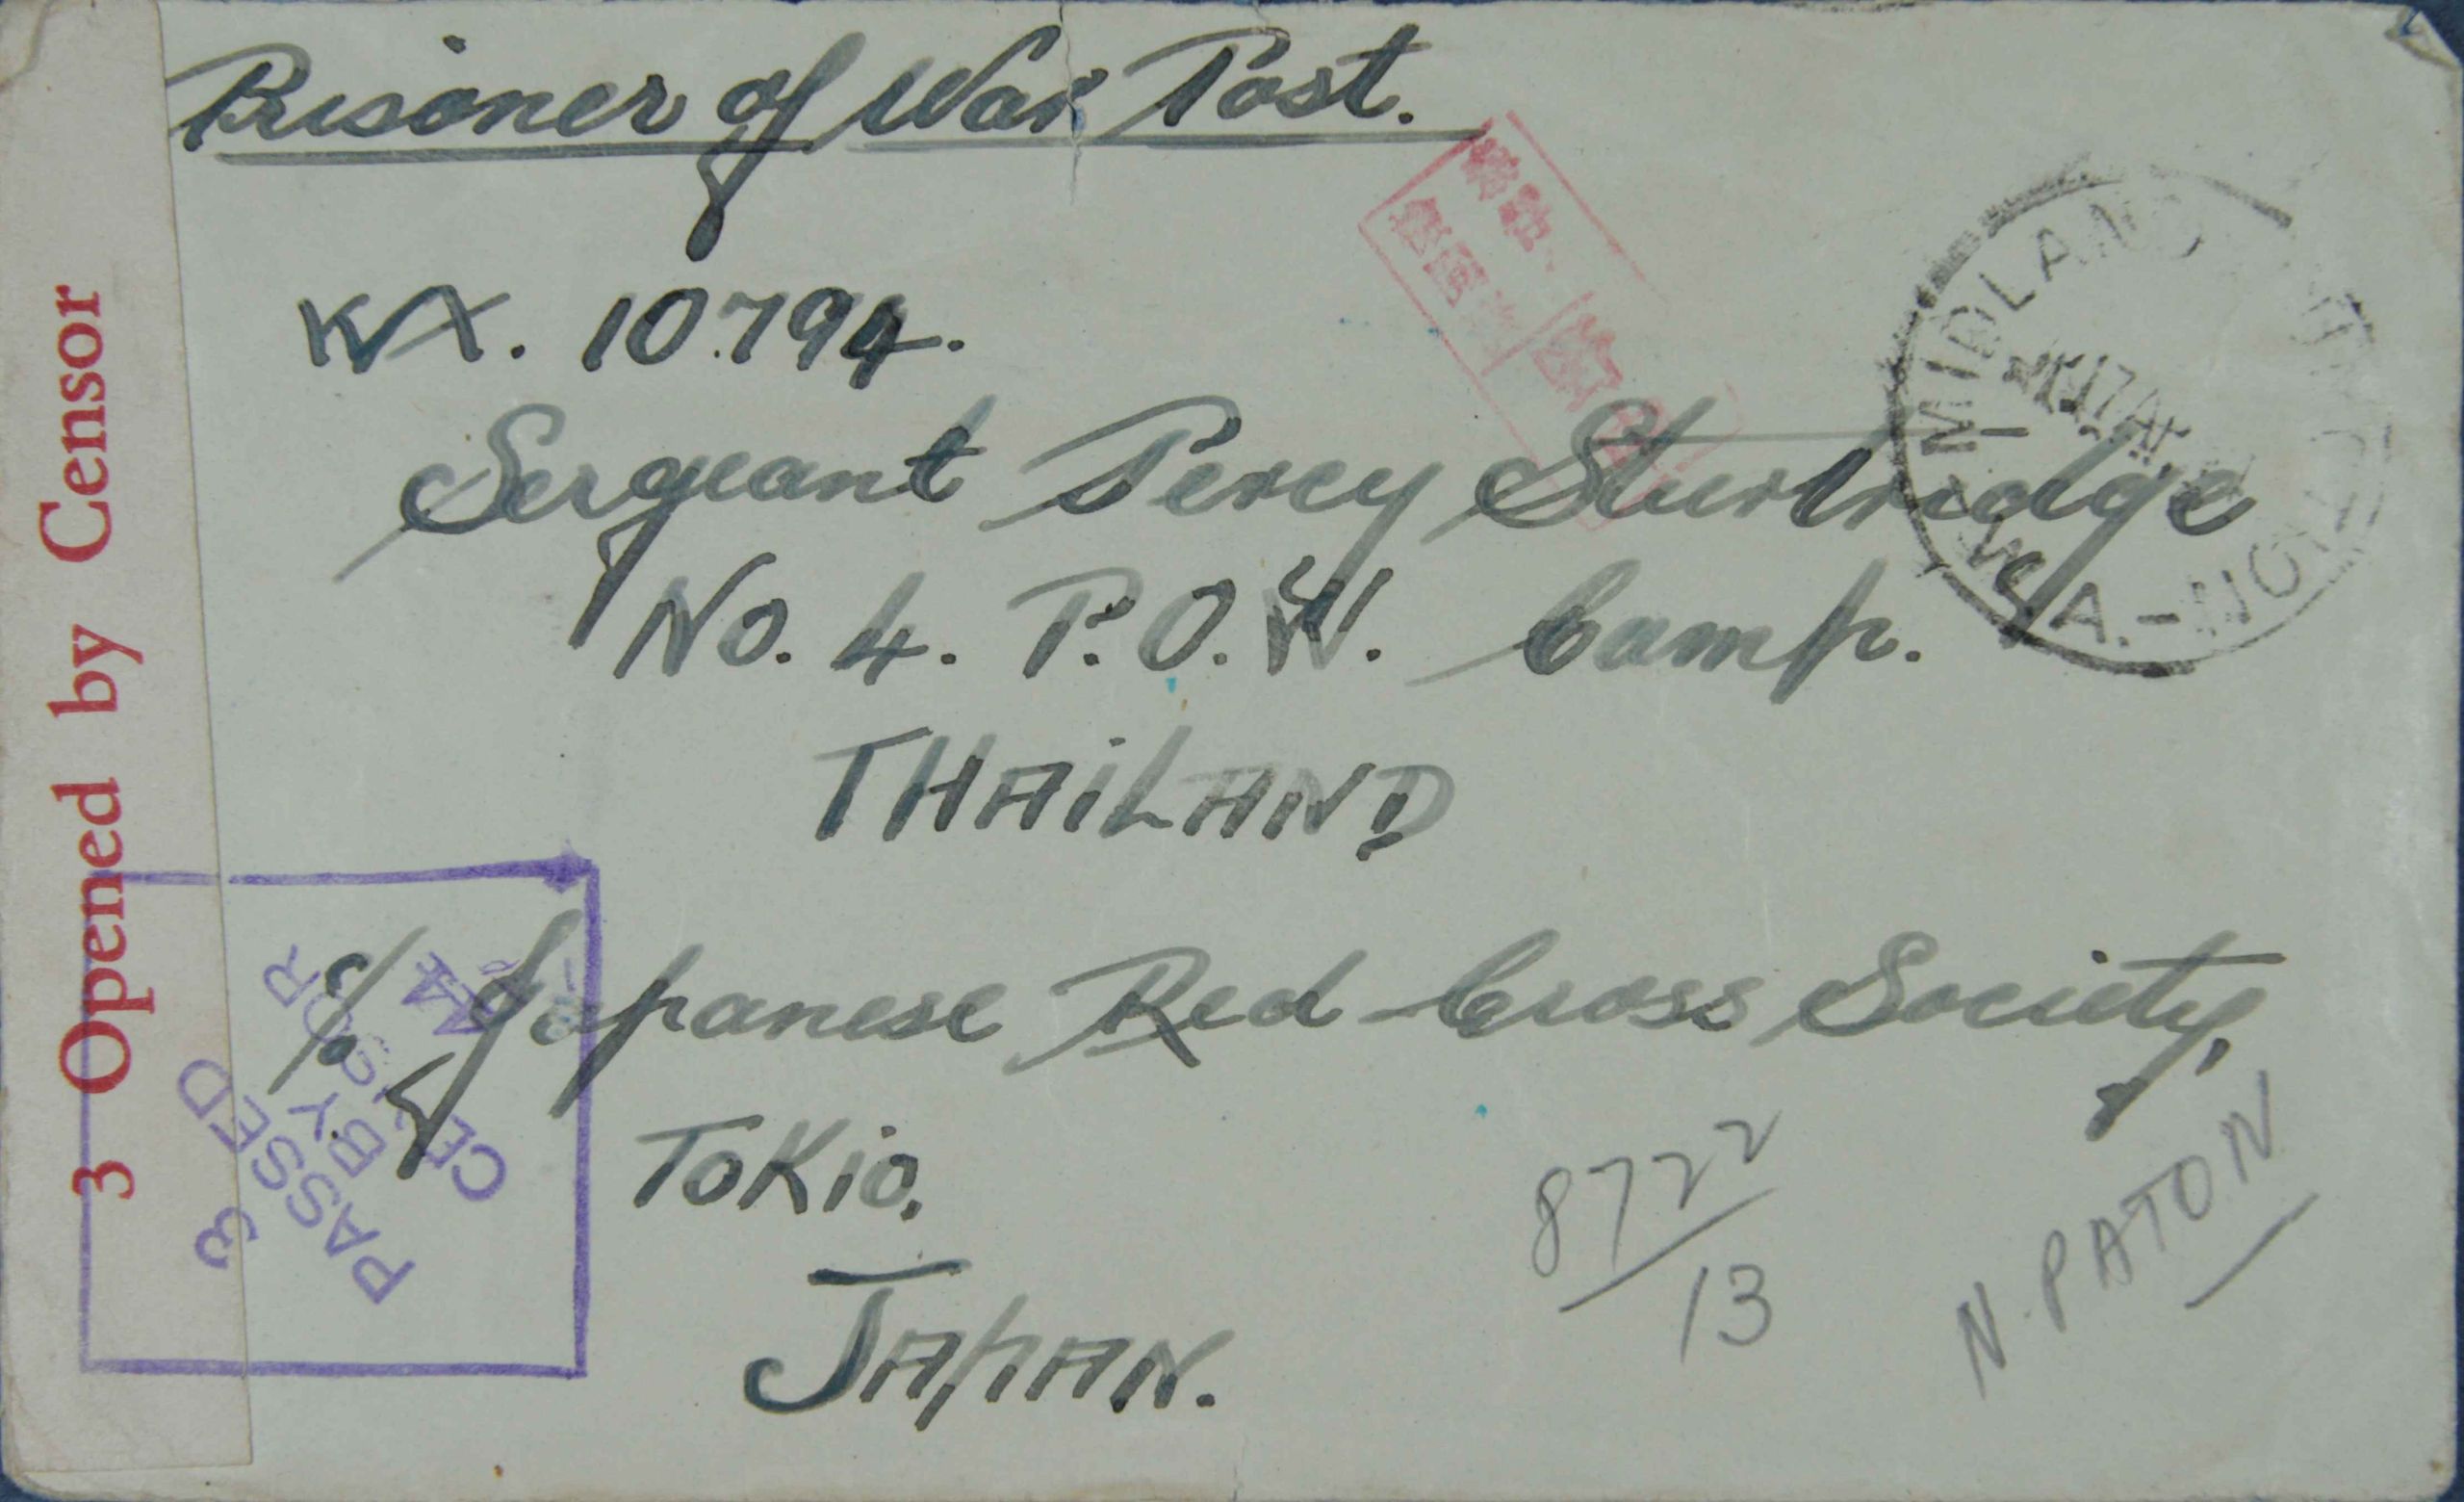 Prisoner of War Post.
WX. 10794.
Sergeant Percy Sturtridge
No. 4. P.O.W. Camp.
THAILAND
c/o Japanese Red Cross Society,
TOKio,
JAPAN.
3 Opened by Censor
3
PASSED
BY
CENSOR
MIDLAND JUNCTION
W.A.-
8722/13
N. PATON